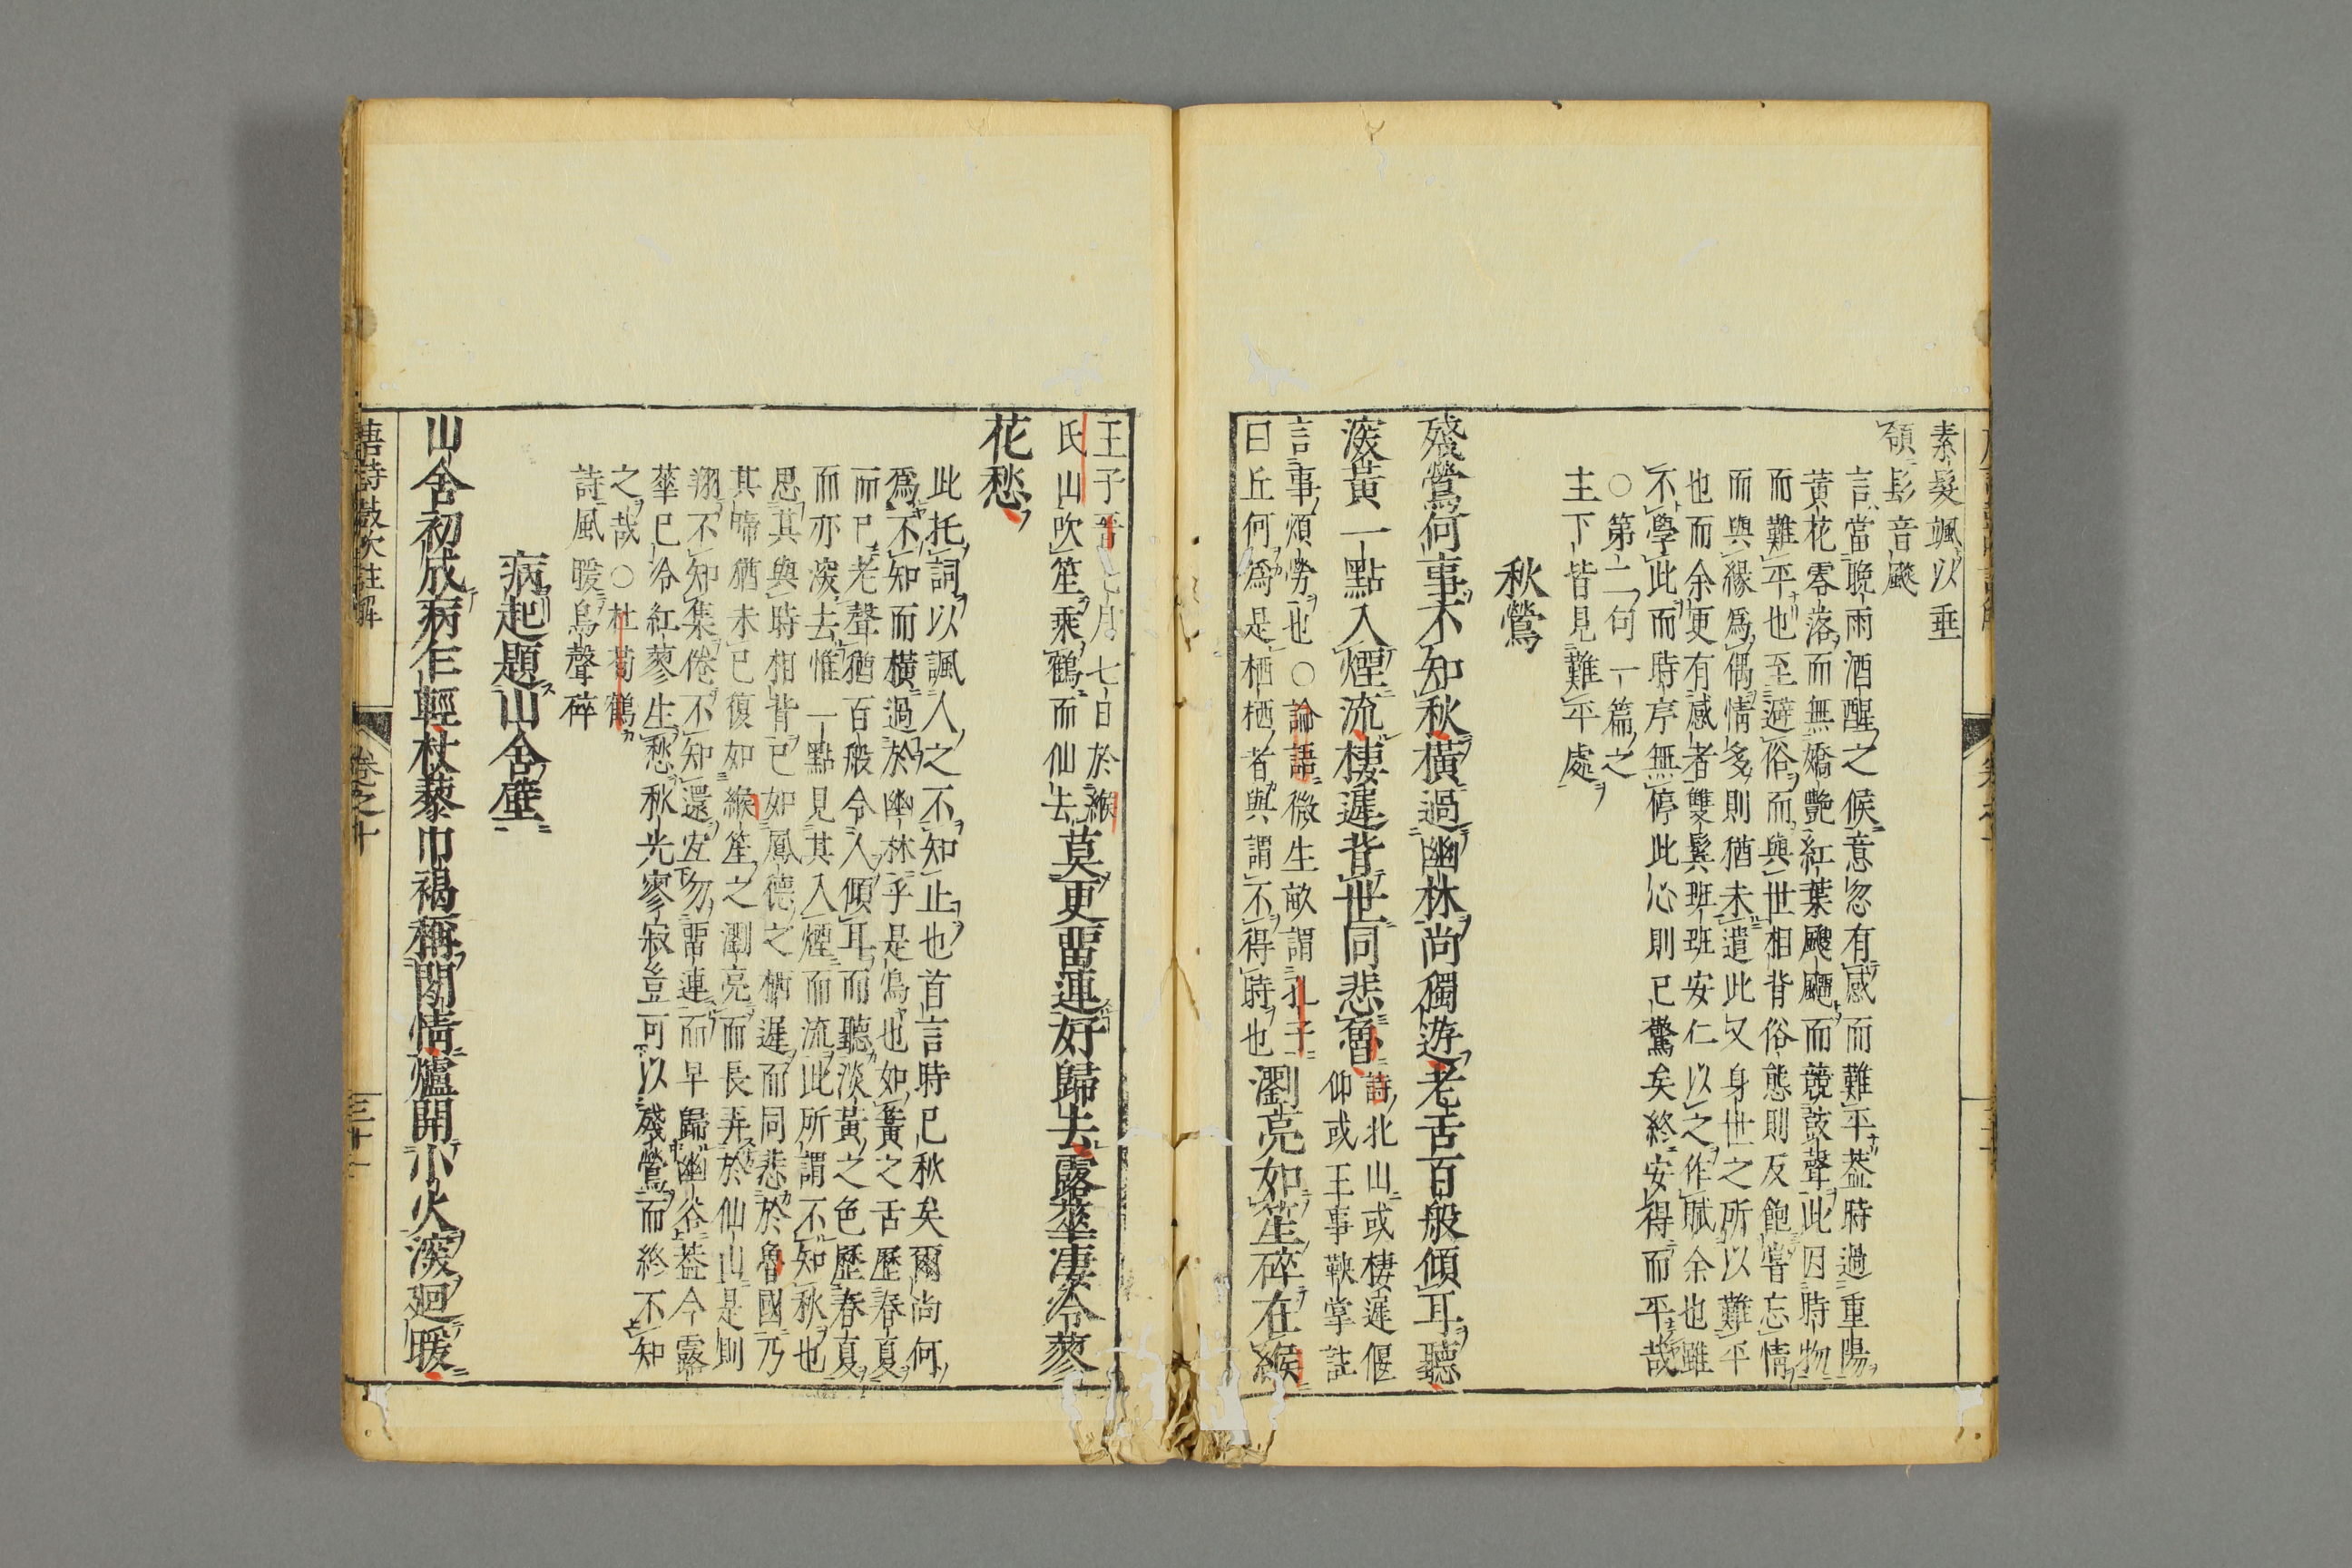 素髮颯以垂
領髟音颷
言當晚雨酒醒之候意忽有感而難平葢時過重陽
黃花零落而無嬌艷紅葉颼飀而競鼓聲此因時物
而難平也至避俗而與世相背俗態則反飽嘗忘情
而與緣爲偶情多則猶未遣此又身世之所以難平
也而余更有感者雙鬂班班安仁以之作賦余也雖
不學此而時序無停此心則已驚矣終安得而平哉
○第二句一篇之
主下皆見難平處
秋鶯
殘鶯何事不知秋橫過幽林尚獨遊老舌百般傾耳聽
深黃一點入煙流棲遲背世同悲魯
詩北山或棲遲偃
仰或王事鞅掌註
言事煩勞也○論語微生畝謂孔子
曰丘何爲是栖栖者與謂不得時也
瀏亮如笙碎在緱
王子
月七日於緱
氏山吹笙乘鶴而仙去
莫更畱連好歸去露華淒冷蓼
花愁
此托詞以諷人之不知止也首言時已秋矣爾尚何
爲不知而橫過於幽林乎是鶯也如簧之舌歷春夏
而已老聲猶百般令人傾耳而聽淡黃之色歷春夏
而亦深去惟一點見其入煙而流此所謂不知秋也
思其與時相背已如鳳德之栖遲而同悲於魯國乃
其啼猶未已復如緱笙之瀏亮而長弄於仙山是則
翔不知集倦不知還宐勿畱連而早歸幽谷葢今露
華已冷紅蓼生愁秋光寥寂豈可以殘鶯而終不知
之哉○杜荀鶴
詩風暖鳥聲碎
病起題山舍壁
山舍初成病乍輕杖藜巾褐稱閑情爐開小火深廻暖
唐詩鼓吹註解
卷之十
三十一